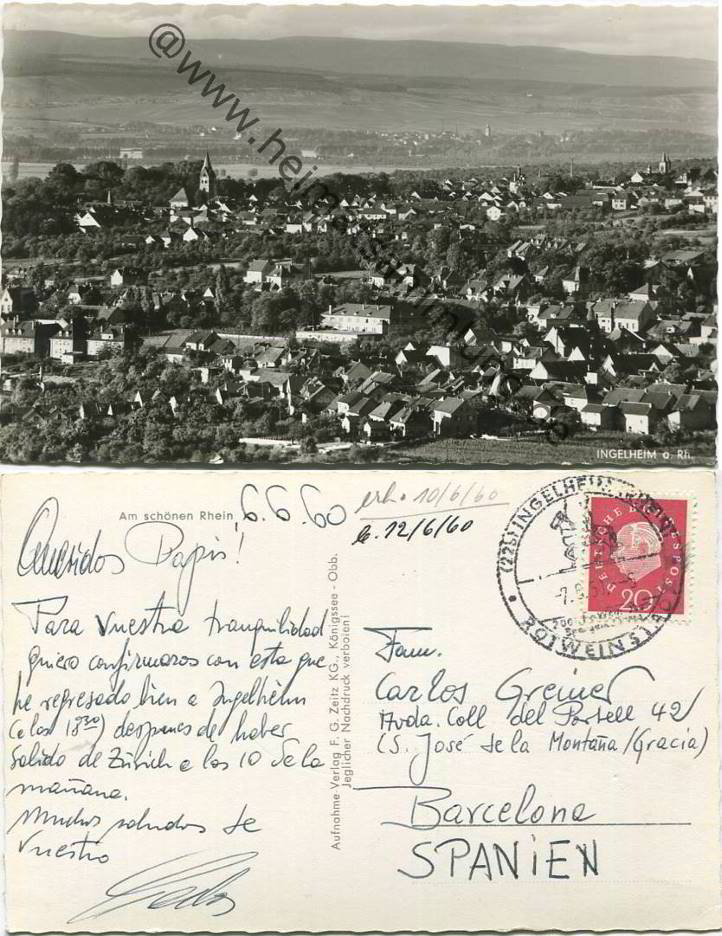 INGELHEIM a. Rh.
Am schönen Rhein 6.6.60
erh. 10/6/60
b. 12/6/60
Queridos Papis!
Para vuestra tranquilidad
quiero confirmaros con esta que
he regresado bien a Ingelheim
(a las 18³⁰) despues de haber
salido de Zürich a las 10 de la
mañana.
Muchos saludos de
vuestro
Aufnahme Verlag F. G. Zeitz KG., Königssee - Obb.
Jeglicher Nachdruck verboten!
(22b) INGELHEIM
ROTWEINSTADT
DEUTSCHE BUNDESPOST
20
Fam.
Carlos Greiner
Avda. Coll del Portell 42
(S. José de la Montaña/Gracia)
Barcelona
SPANIEN